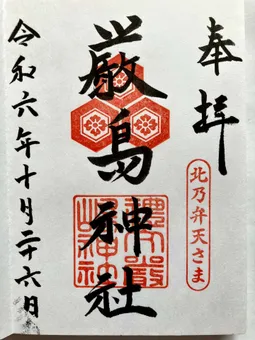 奉拝
北乃弁天さま
厳島神社
令和六年十月二十六日